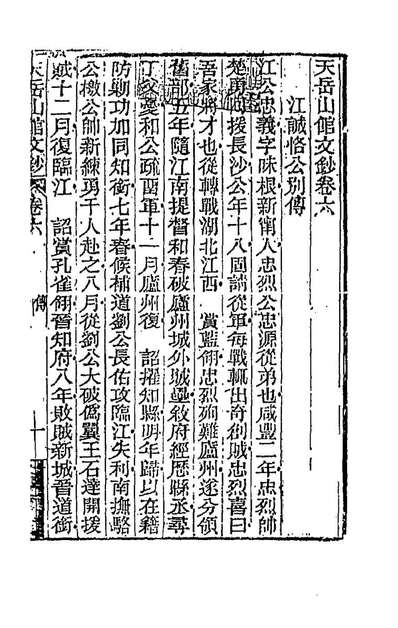 天岳山館文鈔卷六
江誠恪公別傳
江公忠義字味根新甯人忠烈公忠源從弟也咸豐二年忠烈帥
楚勇赴援長沙公年十八固請從軍每戰輒出奇創賊忠烈喜曰
吾家將才也從轉戰湖北江西　賞藍翎忠烈殉難廬州遂分領
舊部五年隨江南提督和春破廬州城外賊壘敘府經歷縣丞尋
丁父憂和公疏留軍十一月廬州復　詔擢知縣明年歸以在籍
防勦功加同知銜七年春候補道劉公長佑攻臨江失利南撫駱
公檄公帥新練勇千人赴之八月從劉公大破僞翼王石達開援
賊十二月復臨江　詔賞孔雀翎晉知府八年敗賊新城晉道銜
天岳山館文鈔　卷六　傳　一